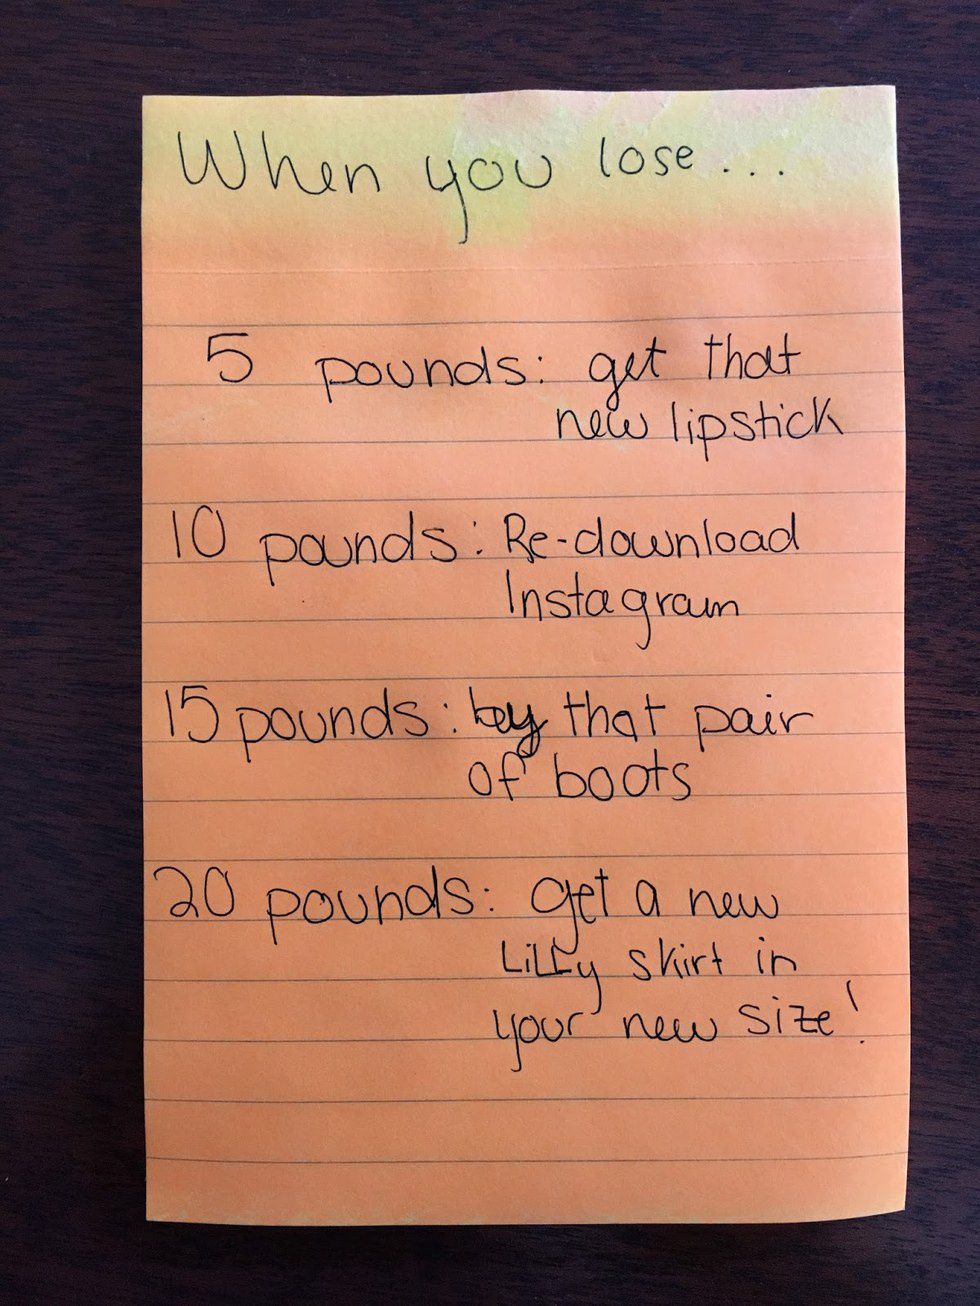 When you lose...
5 pounds: get that
new lipstick
10 pounds: Re-download
Instagram
15 pounds: buy that pair
of boots
20 pounds: get a new
Lilly skirt in
your new size!